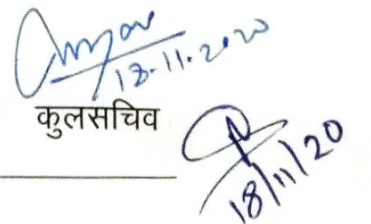 18.11.2020
कुलसचिव
18/11/20